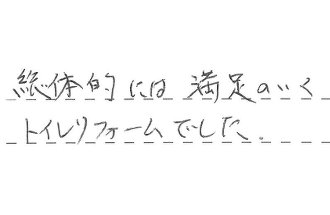 総体的には満足のいく
トイレリフォームでした.